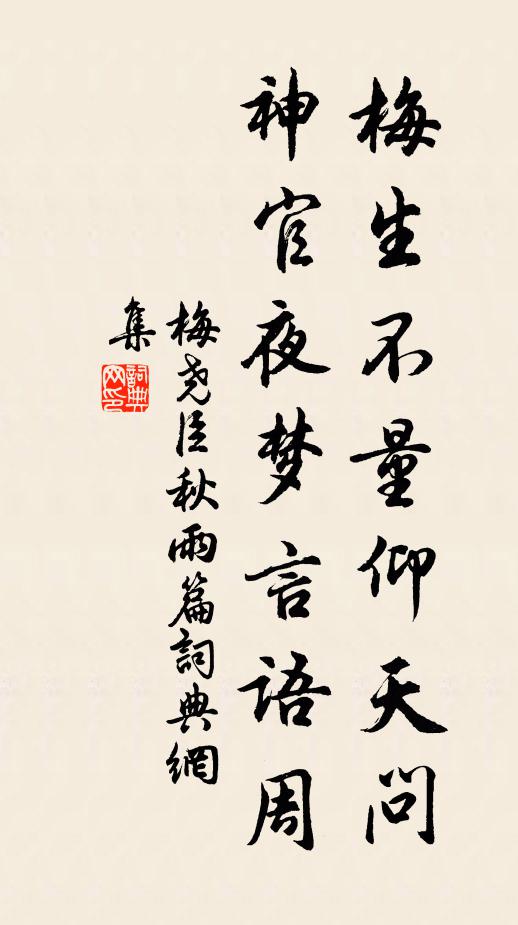 梅生不量仰天问
神官夜梦言语周
梅尧臣秋雨篇词典網
集
詞典
网印